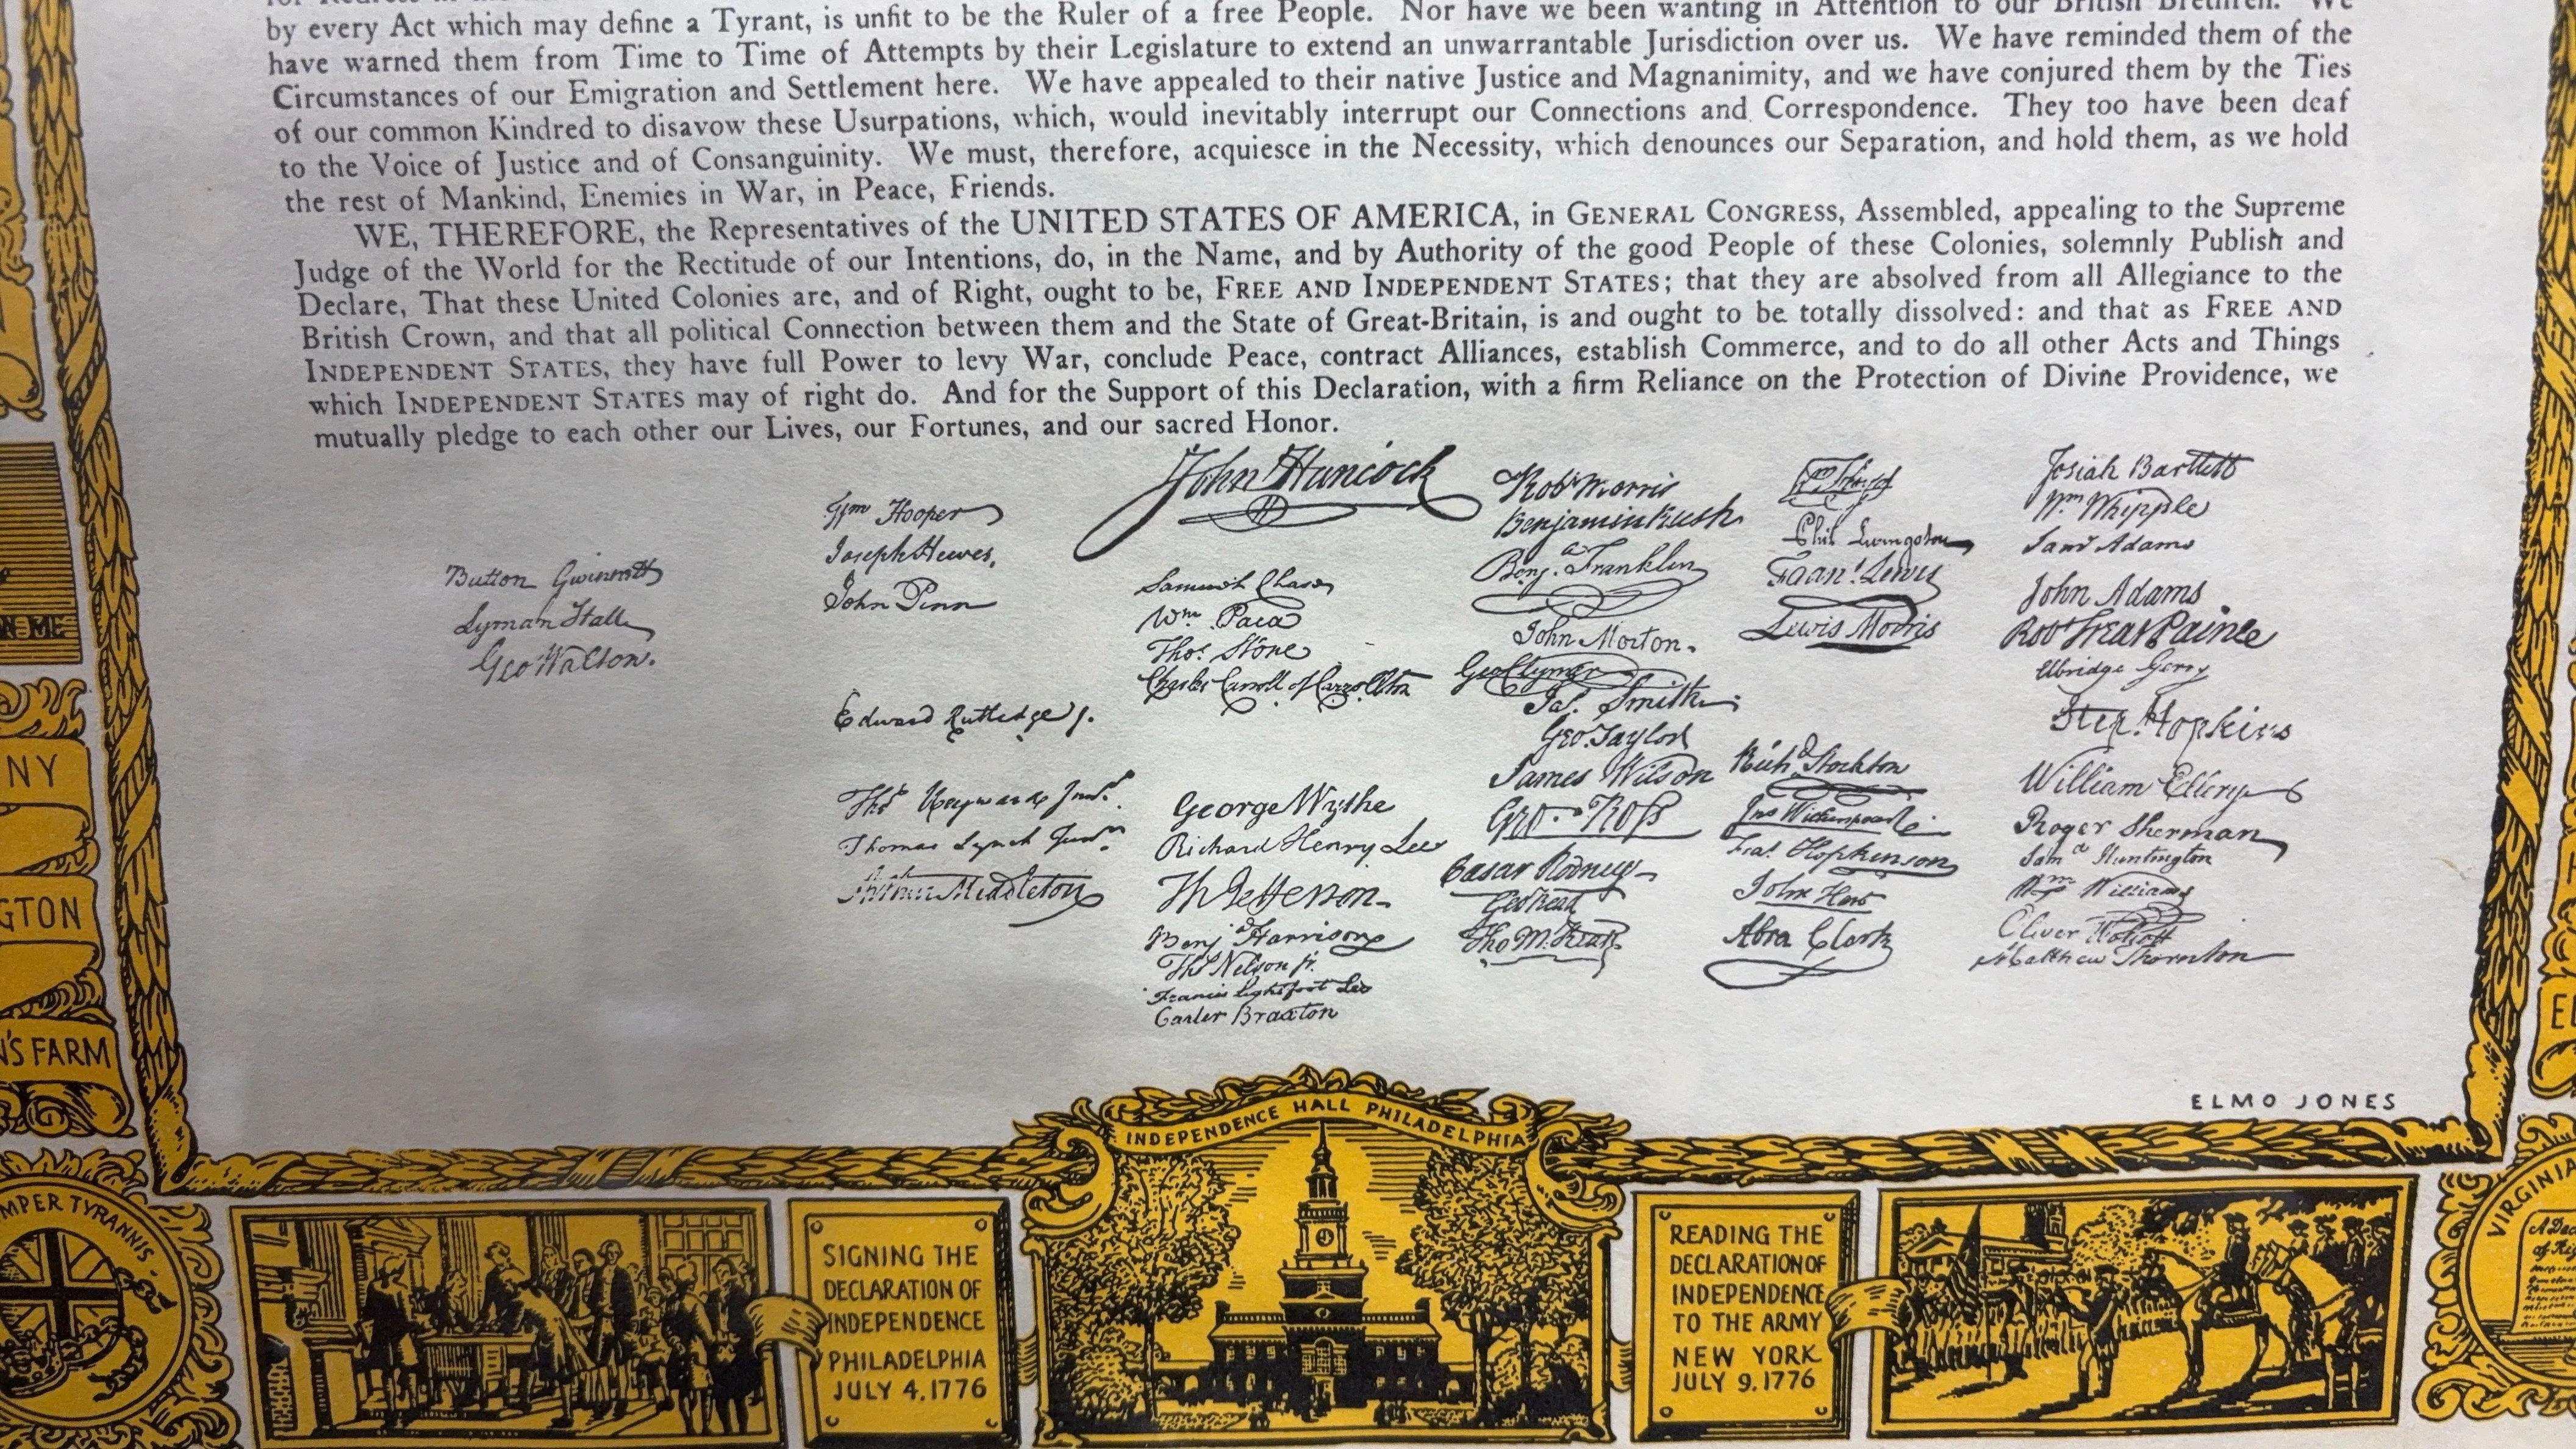 by every Act which may define a Tyrant, is unfit to be the Ruler of a free People. Nor have we been wanting in Attention to our British Brethren. We
have warned them from Time to Time of Attempts by their Legislature to extend an unwarrantable Jurisdiction over us. We have reminded them of the
Circumstances of our Emigration and Settlement here. We have appealed to their native Justice and Magnanimity, and we have conjured them by the Ties
of our common Kindred to disavow these Usurpations, which, would inevitably interrupt our Connections and Correspondence. They too have been deaf
to the Voice of Justice and of Consanguinity. We must, therefore, acquiesce in the Necessity, which denounces our Separation, and hold them, as we hold
the rest of Mankind, Enemies in War, in Peace, Friends.
WE, THEREFORE, the Representatives of the UNITED STATES OF AMERICA, in GENERAL CONGRESS, Assembled, appealing to the Supreme
Judge of the World for the Rectitude of our Intentions, do, in the Name, and by Authority of the good People of these Colonies, solemnly Publish and
Declare, That these United Colonies are, and of Right, ought to be, FREE AND INDEPENDENT STATES; that they are absolved from all Allegiance to the
British Crown, and that all political Connection between them and the State of Great-Britain, is and ought to be totally dissolved: and that as FREE AND
INDEPENDENT STATES, they have full Power to levy War, conclude Peace, contract Alliances, establish Commerce, and to do all other Acts and Things
which INDEPENDENT STATES may of right do. And for the Support of this Declaration, with a firm Reliance on the Protection of Divine Providence, we
mutually pledge to each other our Lives, our Fortunes, and our sacred Honor.
Button Gwinnett
Lyman Hall
Geo Walton.
Wm Hooper
Joseph Hewes,
John Penn
Edward Rutledge /.
Thos Heyward Junr.
Thomas Lynch Junr.
Arthur Middleton
John Hancock
Samuel Chase
Wm. Paca
Thos. Stone
Charles Carroll of Carrollton
George Wythe
Richard Henry Lee
Th Jefferson
Benj Harrison
Thos Nelson jr.
Francis Lightfoot Lee
Carter Braxton
Robt Morris
Benjamin Rush
Benj. Franklin
John Morton.
Geo Clymer
Jas. Smith
Geo. Taylor
James Wilson
Geo. Ross
Caesar Rodney
Geo Read
Tho M:Kean
Phil. Livingston
Frans. Lewis
Lewis Morris
Richd. Stockton
Jno Witherspoon
Fras. Hopkinson
John Hart
Abra Clark
Josiah Bartlett
Wm. Whipple
Saml Adams
John Adams
Robt Treat Paine
Elbridge Gerry
Step. Hopkins
William Ellery
Roger Sherman
Samel Huntington
Wm Williams
Oliver Wolcott
Matthew Thornton
ELMO JONES
NY
GTON
N'S FARM
MPER TYRANNIS
SIGNING THE
DECLARATION OF
INDEPENDENCE
PHILADELPHIA
JULY 4, 1776
INDEPENDENCE HALL PHILADELPHIA
READING THE
DECLARATION OF
INDEPENDENCE
TO THE ARMY
NEW YORK
JULY 9, 1776
VIRGINIA